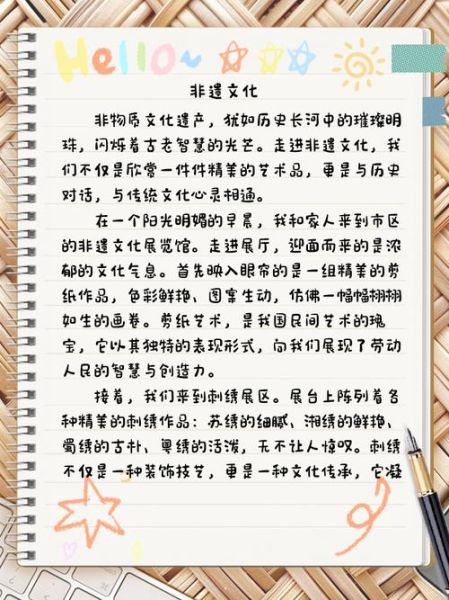 Hello~
非遗文化
非物质文化遗产，犹如历史长河中的璀璨明
珠，闪烁着古老智慧的光芒。走进非遗文化，我
们不仅是欣赏一件件精美的艺术品，更是与历史
对话，与传统文化心灵相通。
在一个阳光明媚的早晨，我和家人来到市区
的非遗文化展览馆。走进展厅，迎面而来的是浓
郁的文化气息。首先映入眼帘的是一组精美的剪
纸作品，色彩鲜艳、图案生动，仿佛一幅幅栩栩
如生的画卷。剪纸艺术，是我国民间艺术的瑰
宝，它以其独特的表现形式，向我们展现了劳动
人民的智慧与创造力。
接着，我们来到刺绣展区。展台上陈列着各
种精美的刺绣作品：苏绣的细腻、湘绣的鲜艳、
蜀绣的古朴、粤绣的活泼，无不让人惊叹。刺绣
不仅是一种装饰技艺，更是一种文化传承，它凝